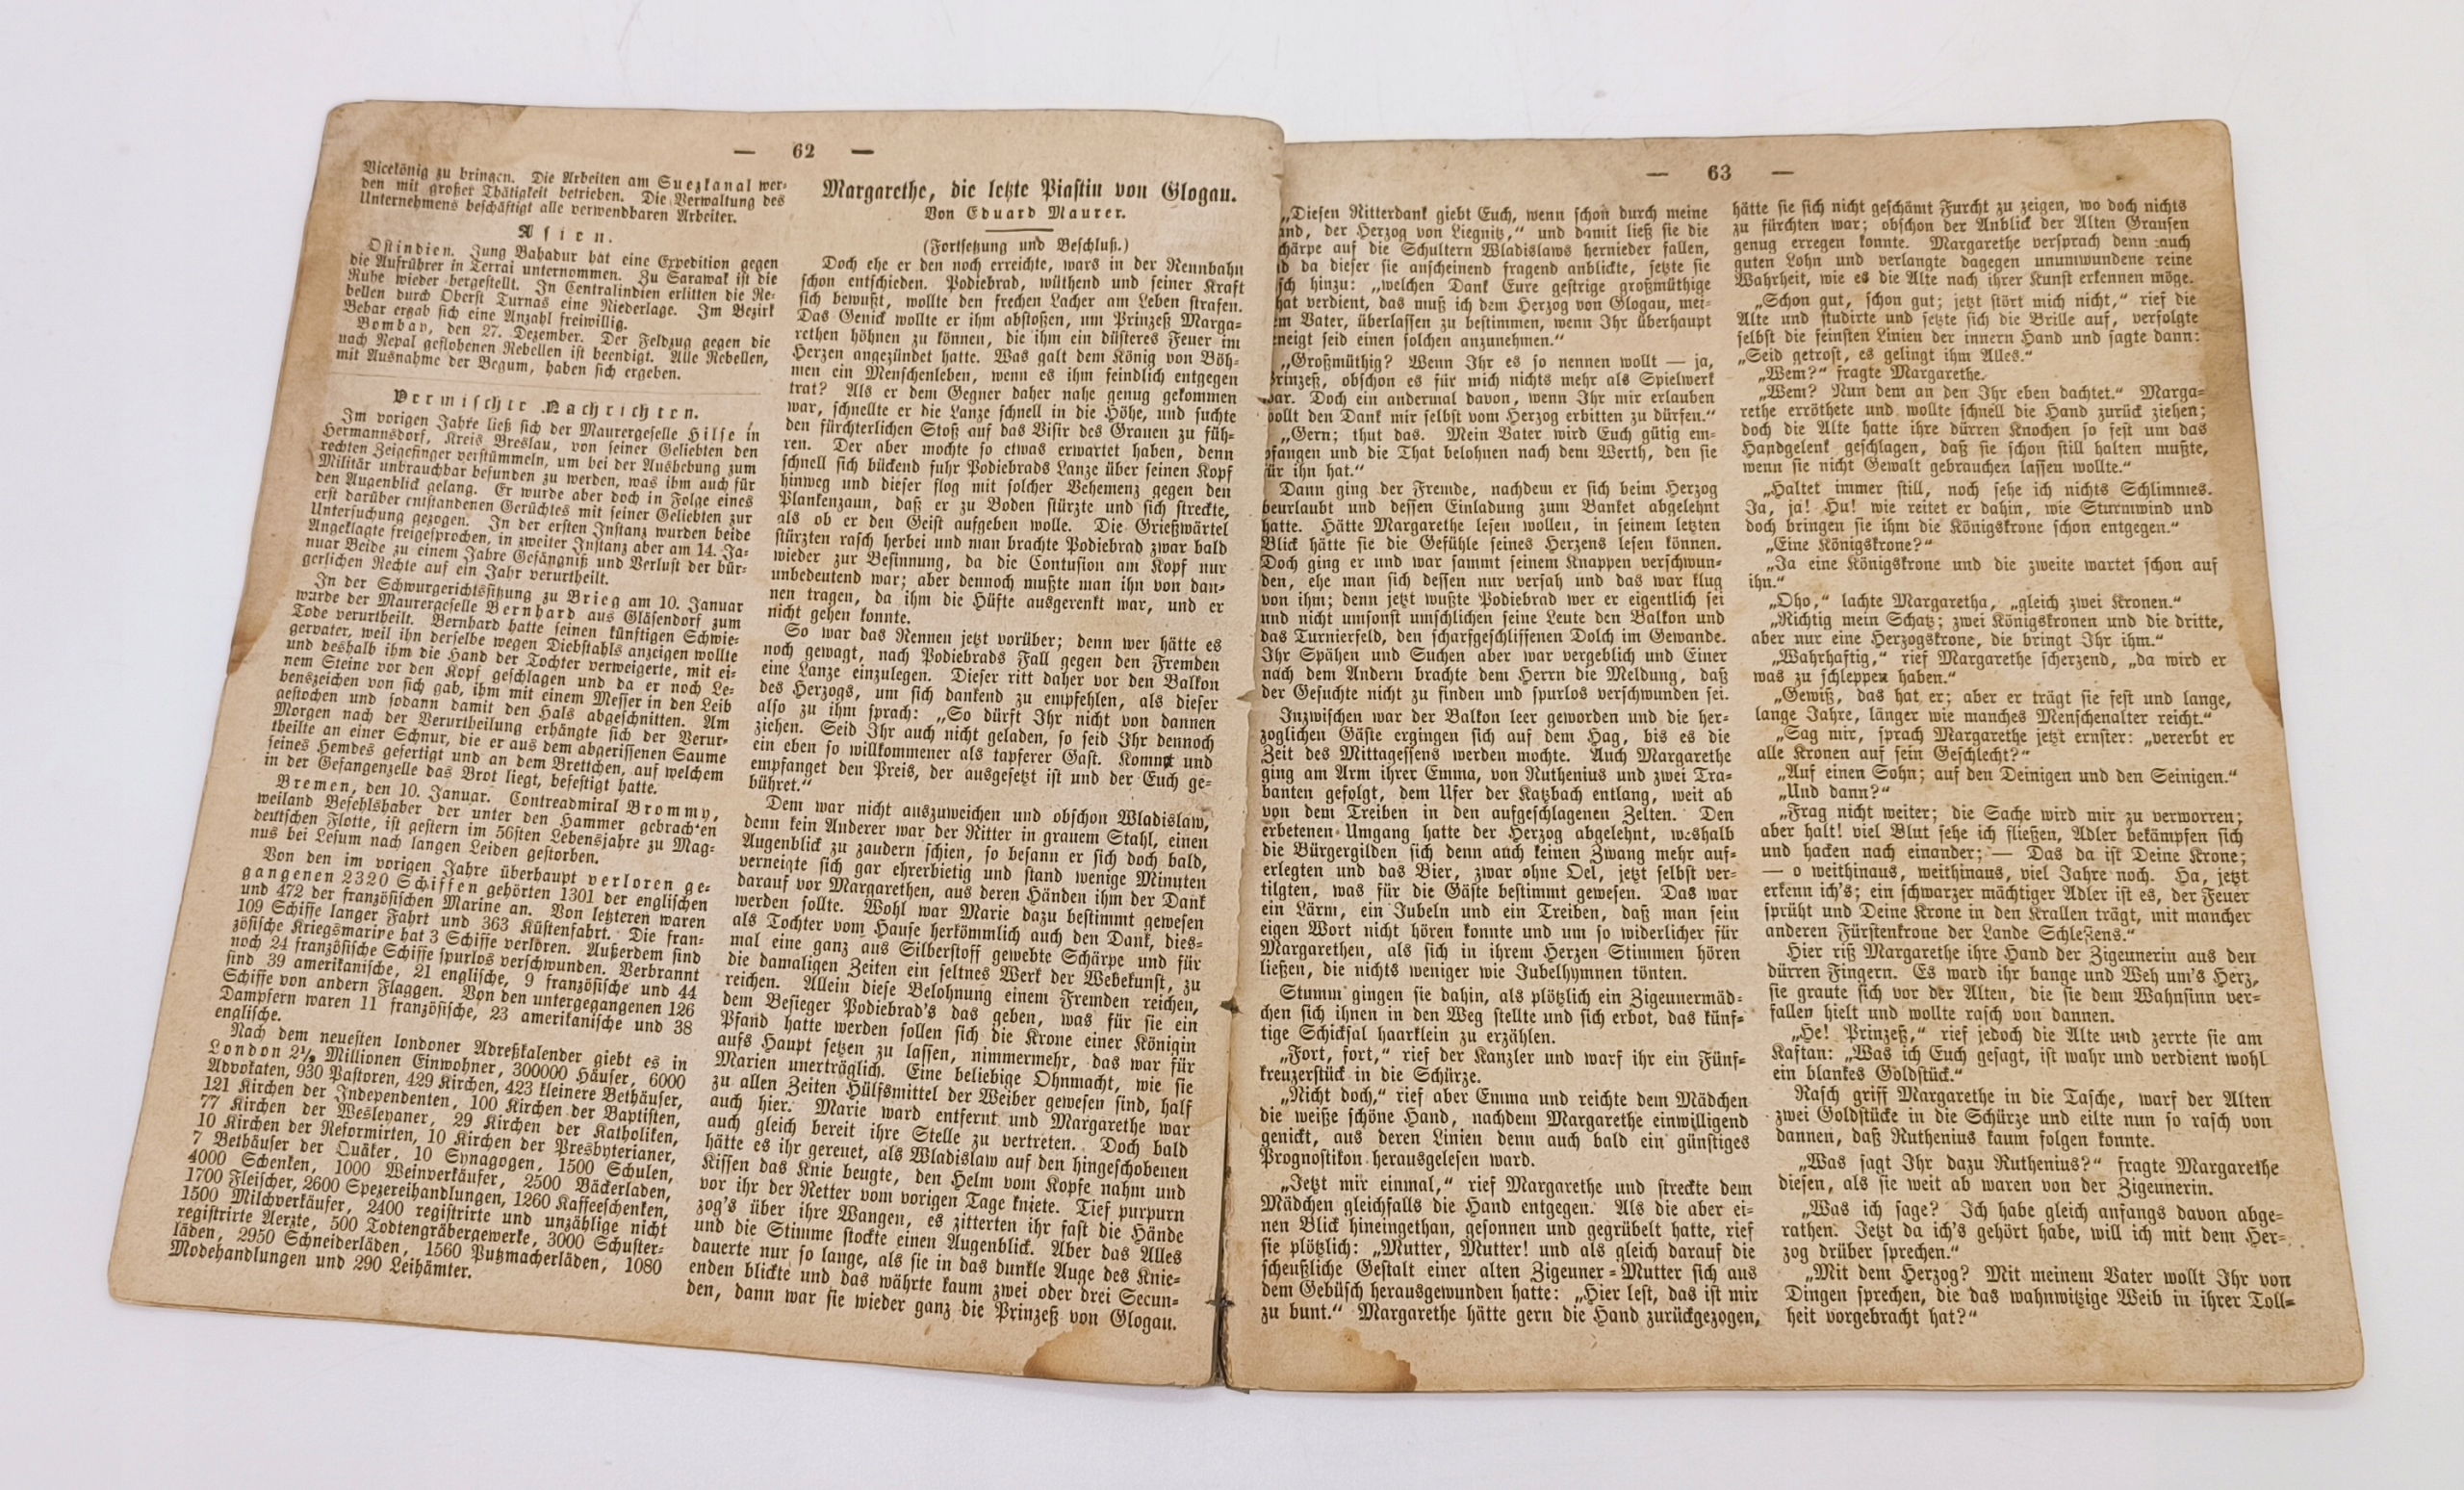 — 62 —
Vicekönig zu bringen. Die Arbeiten am Suezkanal wer-
den mit großer Thätigkeit betrieben. Die Verwaltung des
Unternehmens beschäftigt alle verwendbaren Arbeiter.
Asien.
Ostindien. Jung Bahadur hat eine Expedition gegen
die Aufrührer in Terrai unternommen. Zu Sarawak ist die
Ruhe wieder hergestellt. In Centralindien erlitten die Re-
bellen durch Oberst Turnas eine Niederlage. Im Bezirk
Behar ergab sich eine Anzahl freiwillig.
Bombay, den 27. Dezember. Der Feldzug gegen die
nach Nepal geflohenen Rebellen ist beendigt. Alle Rebellen,
mit Ausnahme der Begum, haben sich ergeben.
Vermischte Nachrichten.
Im vorigen Jahre ließ sich der Maurergeselle Hilse in
Hermannsdorf, Kreis Breslau, von seiner Geliebten den
rechten Zeigefinger verstümmeln, um bei der Aushebung zum
Militär unbrauchbar befunden zu werden, was ihm auch für
den Augenblick gelang. Er wurde aber doch in Folge eines
erst darüber entstandenen Gerüchtes mit seiner Geliebten zur
Untersuchung gezogen. In der ersten Instanz wurden beide
Angeklagte freigesprochen, in zweiter Instanz aber am 14. Ja-
nuar Beide zu einem Jahre Gefängniß und Verlust der bür-
gerlichen Rechte auf ein Jahr verurtheilt.
In der Schwurgerichtssitzung zu Brieg am 10. Januar
wurde der Maurergeselle Bernhard aus Gläsendorf zum
Tode verurtheilt. Bernhard hatte seinen künftigen Schwie-
gervater, weil ihn derselbe wegen Diebstahls anzeigen wollte
und deshalb ihm die Hand der Tochter verweigerte, mit ei-
nem Steine vor den Kopf geschlagen und da er noch Le-
benszeichen von sich gab, ihm mit einem Messer in den Leib
gestochen und sodann damit den Hals abgeschnitten. Am
Morgen nach der Verurtheilung erhängte sich der Verur-
theilte an einer Schnur, die er aus dem abgerissenen Saume
seines Hemdes gefertigt und an dem Brettchen, auf welchem
in der Gefangenzelle das Brot liegt, befestigt hatte.
Bremen, den 10. Januar. Contreadmiral Brommy,
weiland Befehlshaber der unter den Hammer gebrach'en
deutschen Flotte, ist gestern im 56sten Lebensjahre zu Mag-
nus bei Lesum nach langen Leiden gestorben.
Von den im vorigen Jahre überhaupt verloren ge-
gangenen 2320 Schiffen gehörten 1301 der englischen
und 472 der französischen Marine an. Von letzteren waren
109 Schiffe langer Fahrt und 363 Küstenfahrt. Die fran-
zösische Kriegsmarine hat 3 Schiffe verloren. Außerdem sind
noch 24 französische Schiffe spurlos verschwunden. Verbrannt
sind 39 amerikanische, 21 englische, 9 französische und 44
Schiffe von andern Flaggen. Von den untergegangenen 126
Dampfern waren 11 französische, 23 amerikanische und 38
englische.
Nach dem neuesten londoner Adreßkalender giebt es in
London 2½ Millionen Einwohner, 300000 Häuser, 6000
Advokaten, 930 Pastoren, 429 Kirchen, 423 kleinere Bethäuser,
121 Kirchen der Independenten, 100 Kirchen der Baptisten,
77 Kirchen der Wesleyaner, 29 Kirchen der Katholiken,
10 Kirchen der Reformirten, 10 Kirchen der Presbyterianer,
7 Bethäuser der Quäker, 10 Synagogen, 1500 Schulen,
4000 Schenken, 1000 Weinverkäufer, 2500 Bäckerladen,
1700 Fleischer, 2600 Spezereihandlungen, 1260 Kaffeeschenken,
1500 Milchverkäufer, 2400 registrirte und unzählige nicht
registrirte Aerzte, 500 Todtengräbergewerke, 3000 Schuster-
läden, 2950 Schneiderläden, 1560 Putzmacherläden, 1080
Modehandlungen und 290 Leihämter.
Margarethe, die letzte Piastin von Glogau.
Von Eduard Maurer.
(Fortsetzung und Beschluß.)
Doch ehe er den noch erreichte, wars in der Rennbahn
schon entschieden. Podiebrad, wüthend und seiner Kraft
sich bewußt, wollte den frechen Lacher am Leben strafen.
Das Genick wollte er ihm abstoßen, um Prinzeß Marga-
rethen höhnen zu können, die ihm ein düsteres Feuer im
Herzen angezündet hatte. Was galt dem König von Böh-
men ein Menschenleben, wenn es ihm feindlich entgegen
trat? Als er dem Gegner daher nahe genug gekommen
war, schnellte er die Lanze schnell in die Höhe, und suchte
den fürchterlichen Stoß auf das Visir des Grauen zu füh-
ren. Der aber mochte so etwas erwartet haben, denn
schnell sich bückend fuhr Podiebrads Lanze über seinen Kopf
hinweg und dieser flog mit solcher Vehemenz gegen den
Plankenzaun, daß er zu Boden stürzte und sich streckte,
als ob er den Geist aufgeben wolle. Die Grießwärtel
stürzten rasch herbei und man brachte Podiebrad zwar bald
wieder zur Besinnung, da die Contusion am Kopf nur
unbedeutend war; aber dennoch mußte man ihn von dan-
nen tragen, da ihm die Hüfte ausgerenkt war, und er
nicht gehen konnte.
So war das Rennen jetzt vorüber; denn wer hätte es
noch gewagt, nach Podiebrads Fall gegen den Fremden
eine Lanze einzulegen. Dieser ritt daher vor den Balkon
des Herzogs, um sich dankend zu empfehlen, als dieser
also zu ihm sprach: „So dürft Ihr nicht von dannen
ziehen. Seid Ihr auch nicht geladen, so seid Ihr dennoch
ein eben so willkommener als tapferer Gast. Kommt und
empfanget den Preis, der ausgesetzt ist und der Euch ge-
bühret.“
Dem war nicht auszuweichen und obschon Wladislaw,
denn kein Anderer war der Ritter in grauem Stahl, einen
Augenblick zu zaudern schien, so besann er sich doch bald,
verneigte sich gar ehrerbietig und stand wenige Minuten
darauf vor Margarethen, aus deren Händen ihm der Dank
werden sollte. Wohl war Marie dazu bestimmt gewesen
als Tochter vom Hause herkömmlich auch den Dank, dies-
mal eine ganz aus Silberstoff gewebte Schärpe und für
die damaligen Zeiten ein seltnes Werk der Webekunst, zu
reichen. Allein diese Belohnung einem Fremden reichen,
dem Besieger Podiebrad's das geben, was für sie ein
Pfand hatte werden sollen sich die Krone einer Königin
aufs Haupt setzen zu lassen, nimmermehr, das war für
Marien unerträglich. Eine beliebige Ohnmacht, wie sie
zu allen Zeiten Hülfsmittel der Weiber gewesen sind, half
auch hier. Marie ward entfernt und Margarethe war
auch gleich bereit ihre Stelle zu vertreten. Doch bald
hätte es ihr gereuet, als Wladislaw auf den hingeschobenen
Kissen das Knie beugte, den Helm vom Kopfe nahm und
vor ihr der Retter vom vorigen Tage kniete. Tief purpurn
zog's über ihre Wangen, es zitterten ihr fast die Hände
und die Stimme stockte einen Augenblick. Aber das Alles
dauerte nur so lange, als sie in das dunkle Auge des Knie-
enden blickte und das währte kaum zwei oder drei Secun-
den, dann war sie wieder ganz die Prinzeß von Glogau.
— 63 —
„Diesen Ritterdank giebt Euch, wenn schon durch meine
and, der Herzog von Liegnitz,“ und damit ließ sie die
chärpe auf die Schultern Wladislaws hernieder fallen,
d da dieser sie anscheinend fragend anblickte, setzte sie
sch hinzu: „welchen Dank Eure gestrige großmüthige
hat verdient, das muß ich dem Herzog von Glogau, mei-
em Vater, überlassen zu bestimmen, wenn Ihr überhaupt
eneigt seid einen solchen anzunehmen.“
„Großmüthig? Wenn Ihr es so nennen wollt — ja,
Prinzeß, obschon es für mich nichts mehr als Spielwerk
war. Doch ein andermal davon, wenn Ihr mir erlauben
wollt den Dank mir selbst vom Herzog erbitten zu dürfen.“
„Gern; thut das. Mein Vater wird Euch gütig em-
pfangen und die That belohnen nach dem Werth, den sie
für ihn hat.“
Dann ging der Fremde, nachdem er sich beim Herzog
beurlaubt und dessen Einladung zum Banket abgelehnt
hatte. Hätte Margarethe lesen wollen, in seinem letzten
Blick hätte sie die Gefühle seines Herzens lesen können.
Doch ging er und war sammt seinem Knappen verschwun-
den, ehe man sich dessen nur versah und das war klug
von ihm; denn jetzt wußte Podiebrad wer er eigentlich sei
und nicht umsonst umschlichen seine Leute den Balkon und
das Turnierfeld, den scharfgeschliffenen Dolch im Gewande.
Ihr Spähen und Suchen aber war vergeblich und Einer
nach dem Andern brachte dem Herrn die Meldung, daß
der Gesuchte nicht zu finden und spurlos verschwunden sei.
Inzwischen war der Balkon leer geworden und die her-
zoglichen Gäste ergingen sich auf dem Hag, bis es die
Zeit des Mittagessens werden mochte. Auch Margarethe
ging am Arm ihrer Emma, von Ruthenius und zwei Tra-
banten gefolgt, dem Ufer der Katzbach entlang, weit ab
von dem Treiben in den aufgeschlagenen Zelten. Den
erbetenen Umgang hatte der Herzog abgelehnt, weshalb
die Bürgergilden sich denn auch keinen Zwang mehr auf-
erlegten und das Bier, zwar ohne Oel, jetzt selbst ver-
tilgten, was für die Gäste bestimmt gewesen. Das war
ein Lärm, ein Jubeln und ein Treiben, daß man sein
eigen Wort nicht hören konnte und um so widerlicher für
Margarethen, als sich in ihrem Herzen Stimmen hören
ließen, die nichts weniger wie Jubelhymnen tönten.
Stumm gingen sie dahin, als plötzlich ein Zigeunermäd-
chen sich ihnen in den Weg stellte und sich erbot, das künf-
tige Schicksal haarklein zu erzählen.
„Fort, fort,“ rief der Kanzler und warf ihr ein Fünf-
kreuzerstück in die Schürze.
„Nicht doch,“ rief aber Emma und reichte dem Mädchen
die weiße schöne Hand, nachdem Margarethe einwilligend
genickt, aus deren Linien denn auch bald ein günstiges
Prognostikon herausgelesen ward.
„Jetzt mir einmal,“ rief Margarethe und streckte dem
Mädchen gleichfalls die Hand entgegen. Als die aber ei-
nen Blick hineingethan, gesonnen und gegrübelt hatte, rief
sie plötzlich: „Mutter, Mutter! und als gleich darauf die
scheußliche Gestalt einer alten Zigeuner-Mutter sich aus
dem Gebüsch herausgewunden hatte: „Hier lest, das ist mir
zu bunt.“ Margarethe hätte gern die Hand zurückgezogen,
hätte sie sich nicht geschämt Furcht zu zeigen, wo doch nichts
zu fürchten war; obschon der Anblick der Alten Grausen
genug erregen konnte. Margarethe versprach denn auch
guten Lohn und verlangte dagegen unumwundene reine
Wahrheit, wie es die Alte nach ihrer Kunst erkennen möge.
„Schon gut, schon gut; jetzt stört mich nicht,“ rief die
Alte und studirte und setzte sich die Brille auf, verfolgte
selbst die feinsten Linien der innern Hand und sagte dann:
„Seid getrost, es gelingt ihm Alles.“
„Wem?“ fragte Margarethe.
„Wem? Nun dem an den Ihr eben dachtet.“ Marga-
rethe erröthete und wollte schnell die Hand zurück ziehen;
doch die Alte hatte ihre dürren Knochen so fest um das
Handgelenk geschlagen, daß sie schon still halten mußte,
wenn sie nicht Gewalt gebrauchen lassen wollte.“
„Haltet immer still, noch sehe ich nichts Schlimmes.
Ja, ja! Hu! wie reitet er dahin, wie Sturmwind und
doch bringen sie ihm die Königskrone schon entgegen.“
„Eine Königskrone?“
„Ja eine Königskrone und die zweite wartet schon auf
ihn.“
„Oho,“ lachte Margaretha, „gleich zwei Kronen.“
„Richtig mein Schatz; zwei Königskronen und die dritte,
aber nur eine Herzogskrone, die bringt Ihr ihm.“
„Wahrhaftig,“ rief Margarethe scherzend, „da wird er
was zu schleppen haben.“
„Gewiß, das hat er; aber er trägt sie fest und lange,
lange Jahre, länger wie manches Menschenalter reicht.“
„Sag mir, sprach Margarethe jetzt ernster: „vererbt er
alle Kronen auf sein Geschlecht?“
„Auf einen Sohn; auf den Deinigen und den Seinigen.“
„Und dann?“
„Frag nicht weiter; die Sache wird mir zu verworren;
aber halt! viel Blut sehe ich fließen, Adler bekämpfen sich
und hacken nach einander; — Das da ist Deine Krone;
— o weithinaus, weithinaus, viel Jahre noch. Ha, jetzt
erkenn ich's; ein schwarzer mächtiger Adler ist es, der Feuer
sprüht und Deine Krone in den Krallen trägt, mit mancher
anderen Fürstenkrone der Lande Schlesiens.“
Hier riß Margarethe ihre Hand der Zigeunerin aus den
dürren Fingern. Es ward ihr bange und Weh um's Herz,
sie graute sich vor der Alten, die sie dem Wahnsinn ver-
fallen hielt und wollte rasch von dannen.
„He! Prinzeß,“ rief jedoch die Alte und zerrte sie am
Kaftan: „Was ich Euch gesagt, ist wahr und verdient wohl
ein blankes Goldstück.“
Rasch griff Margarethe in die Tasche, warf der Alten
zwei Goldstücke in die Schürze und eilte nun so rasch von
dannen, daß Ruthenius kaum folgen konnte.
„Was sagt Ihr dazu Ruthenius?“ fragte Margarethe
diesen, als sie weit ab waren von der Zigeunerin.
„Was ich sage? Ich habe gleich anfangs davon abge-
rathen. Jetzt da ich's gehört habe, will ich mit dem Her-
zog drüber sprechen.“
„Mit dem Herzog? Mit meinem Vater wollt Ihr von
Dingen sprechen, die das wahnwitzige Weib in ihrer Toll-
heit vorgebracht hat?“